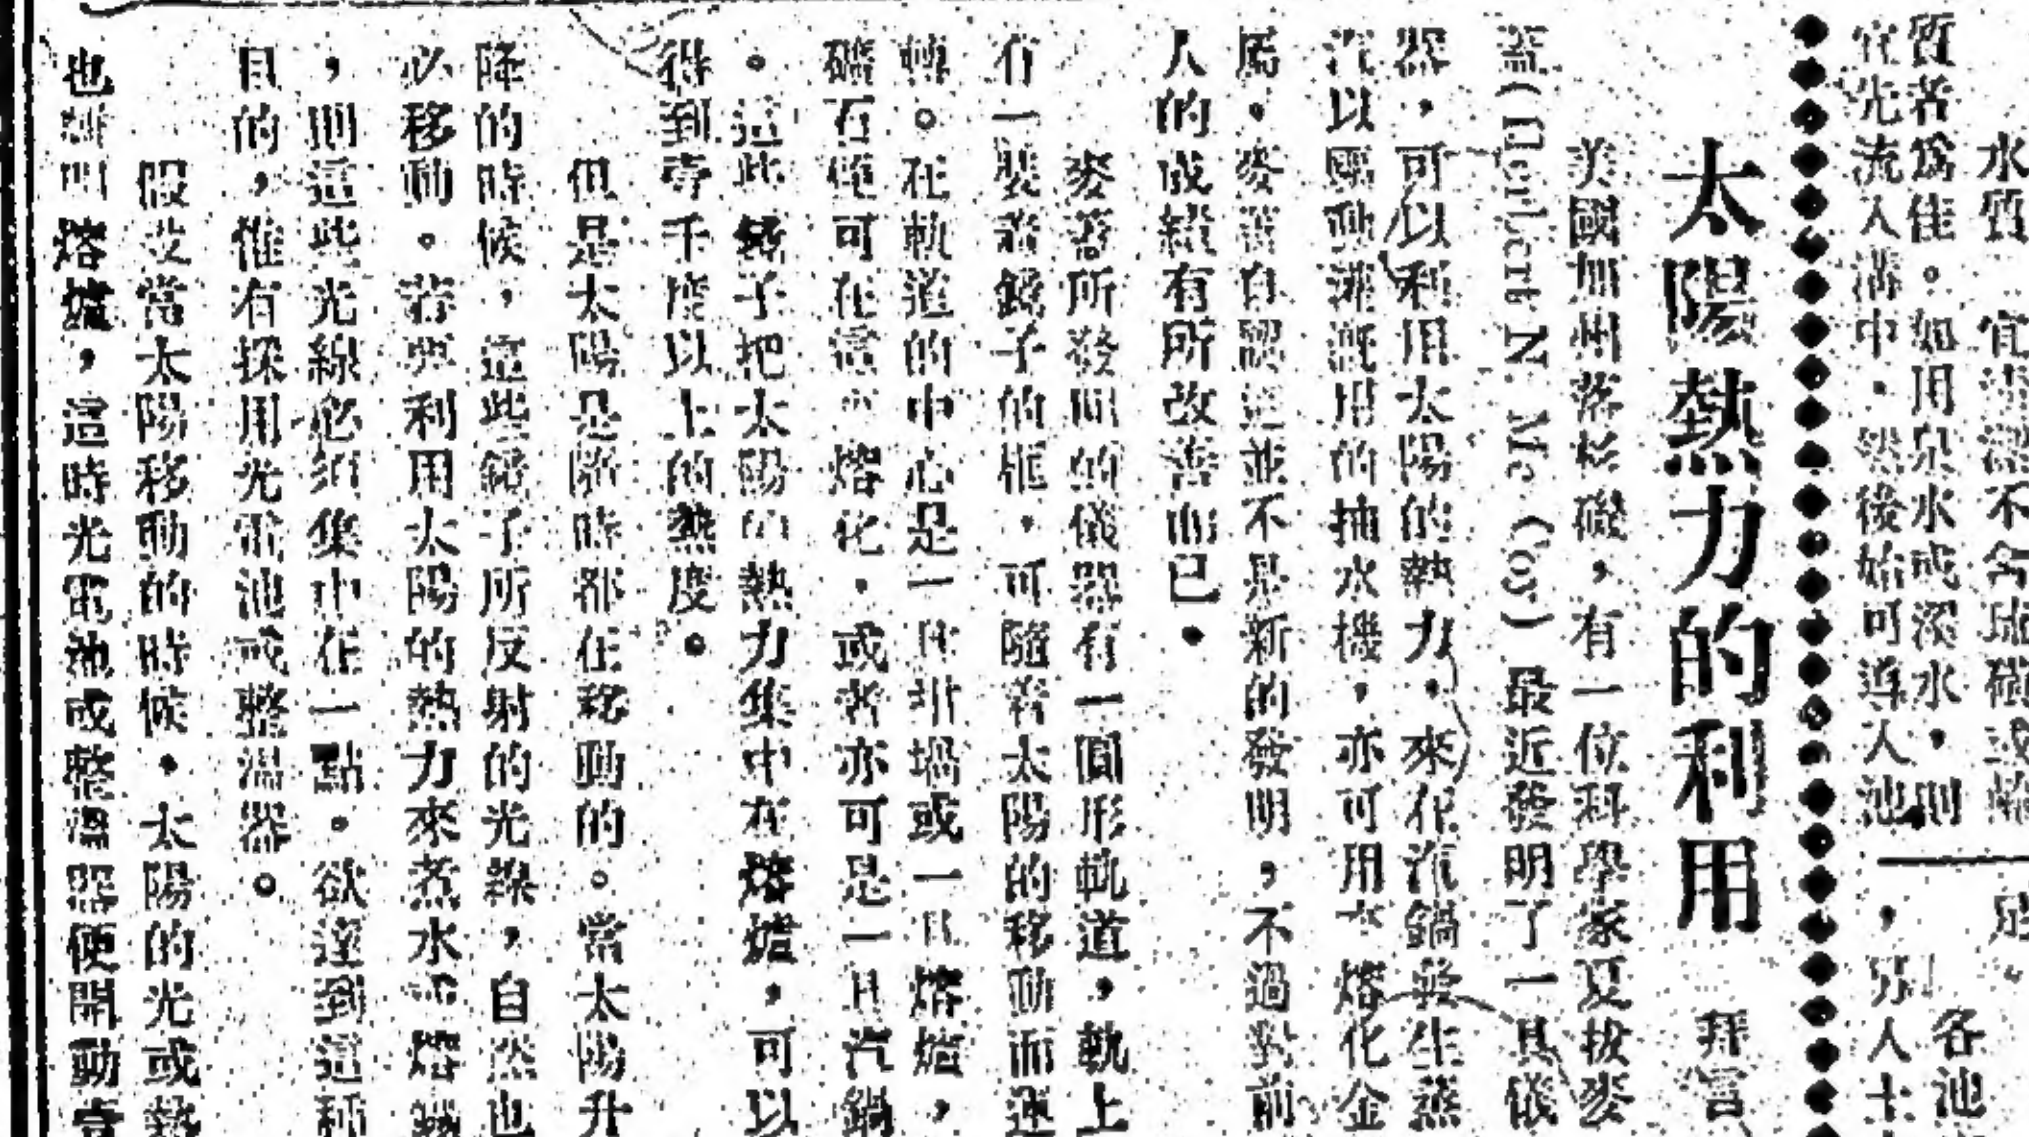 水質 宜清潔不含琉磺或
質者爲佳。如用泉水或深水，則
宜先流入溝中．然後始可導入池
各池
，另人士
太陽熱力的利用 拜言
美國加州落杉磯，有一位科學家夏拔麥
蓋(Herbert N. Mc Coy)最近發明了一具儀
器，可以利用太陽的熱力，來在汽鍋發生蒸
汽以驅動灌漑用的抽水機，亦可用來熔化金
屬．麥蓋自認這並不是新的發明，不過對前
人的成績有所改善而已．
麥蓋所發明的儀器有一圓形軌道，軌上
有一裝着鏡子的框．可隨着太陽的移動而運
轉。在軌道的中心是一具坩堝或一具熔爐，
礦石便可在這 熔化．或者亦可是一具汽鍋
。這些鏡子把太陽的熱力集中在熔爐，可以
得到壹千度以上的熱度。
但是太陽是隨時都在移動的。當太陽升
降的時候，這些鏡子所反射的光線，自然也
必移動。若要利用太陽的熱力來煮水或熔鐵
，則這些光線必須集中在一點。欲達到這種
目的，惟有採用光電池或整溫器。
假設當太陽移動的時候．太陽的光或熱
也 熔爐，這時光電池或整溫器便開動